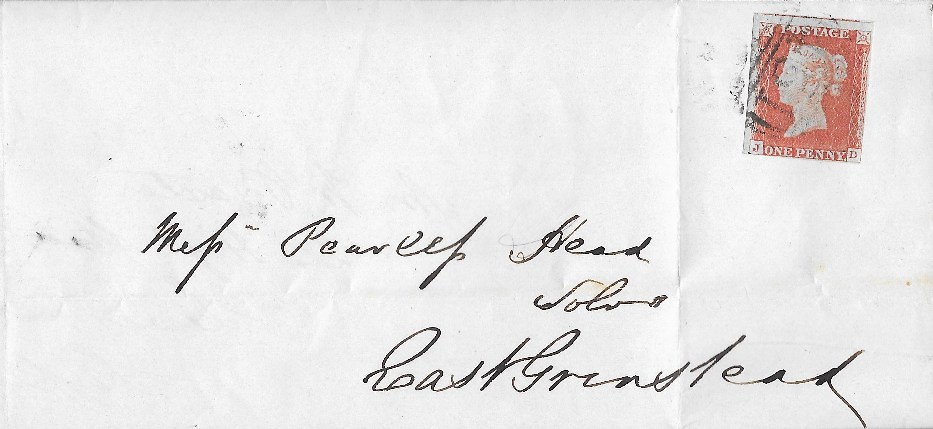 POSTAGE
J ONE PENNY D
Mess Pearless Head
Solrs
East Grinstead